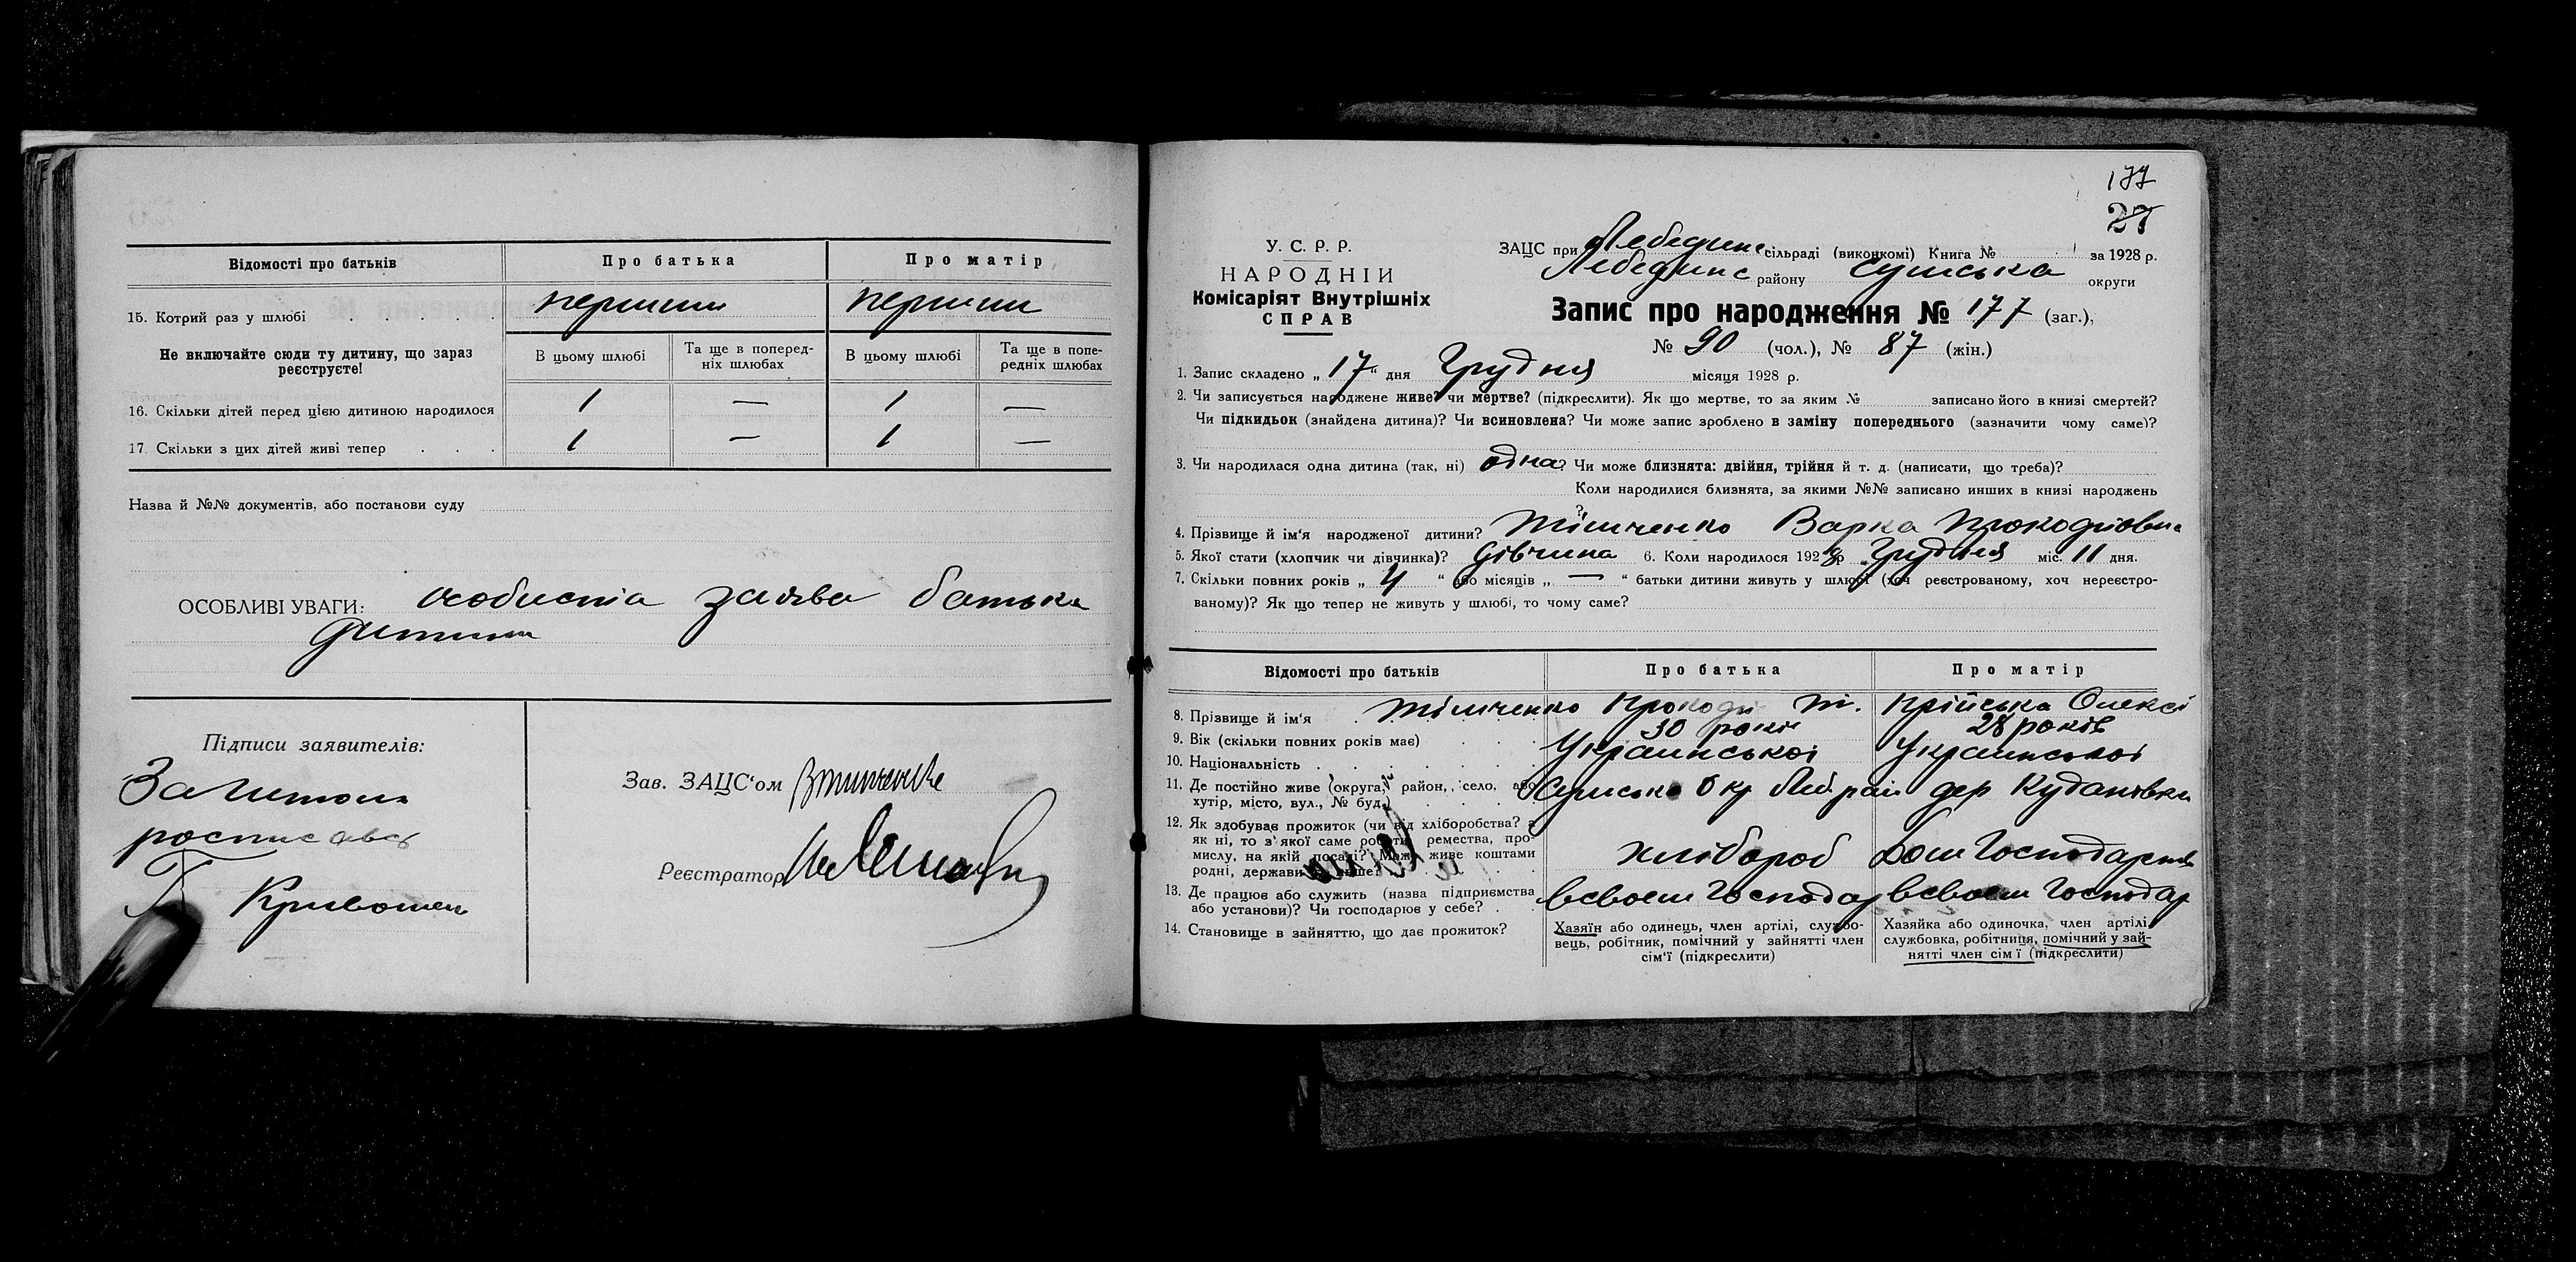 Відомості про батьків Про батька Про матір
15. Котрий раз у шлюбі перший перший
Не включайте сюди ту дитину, що зараз реєструєте!
В цьому шлюбі Та ще в попередніх шлюбах В цьому шлюбі Та ще в попередніх шлюбах
16. Скільки дітей перед цією дитиною народилося 1 — 1 —
17. Скільки з цих дітей живі тепер 1 — 1 —
Назва й №№ документів, або постанови суду
ОСОБЛИВІ УВАГИ: особиста заява батька
дитини
Підписи заявителів:
росписавсь
Зав. ЗАЦС'ом
Реєстратор
177
27
У. С. Р. Р.
НАРОДНІЙ
Комісаріят Внутрішніх
СПРАВ
ЗАЦС при Лебединс сільраді (виконкомі) Книга № за 1928 р.
Лебединс району Сумська округи
Запис про народження № 177 (заг.),
№ 90 (чол.), № 87 (жін.)
1. Запис складено „ 17 “ дня Грудня місяця 1928 р.
2. Чи записується народжене живе? чи мертве? (підкреслити). Як що мертве, то за яким № записано його в книзі смертей?
Чи підкидьок (знайдена дитина)? Чи всиновлена? Чи може запис зроблено в заміну попереднього (зазначити чому саме)?
3. Чи народилася одна дитина (так, ні) одна? Чи може близнята: двійня, трійня й т. д. (написати, що треба)?
Коли народилися близнята, за якими №№ записано инших в книзі народжень
?
4. Прізвище й ім'я народженої дитини? Варка
5. Якої стати (хлопчик чи дівчинка)? Дівчина 6. Коли народилося 1928 р „ Грудня міс. 11 дня.
7. Скільки повних років „ 4 “ або місяців „ — “ батьки дитини живуть у шлюбі (хоч реєстрованому, хоч нереєстро-
ваному)? Як що тепер не живуть у шлюбі, то чому саме?
Відомості про батьків Про батька Про матір
8. Прізвище й ім'я
9. Вік (скільки повних років має) 30 років 28 років
10. Національність Украинськоі Украинськоі
11. Де постійно живе (округа, район, село, або
хутір, місто, вул., № буд.) Сумська Окр Леб рай дер Кудановка
12. Як здобуває прожиток (чи від хліборобства? а
як ні, то з якої саме роботи, ремества, про-
мислу, на якій посаді? Може живе коштами
родні, держави чи инше? хлібороб Дом Господарств
13. Де працює або служить (назва підприємства
або установи)? Чи господарює у себе? всвоем Господар всвоем Господар
14. Становище в зайняттю, що дає прожиток?
Хазяїн або одинець, член артілі, службо-
вець, робітник, помічний у зайнятті член
сім'ї (підкреслити)
Хазяйка або одиночка, член артілі,
службовка, робітниця, помічний у зай-
нятті член сім'ї (підкреслити)